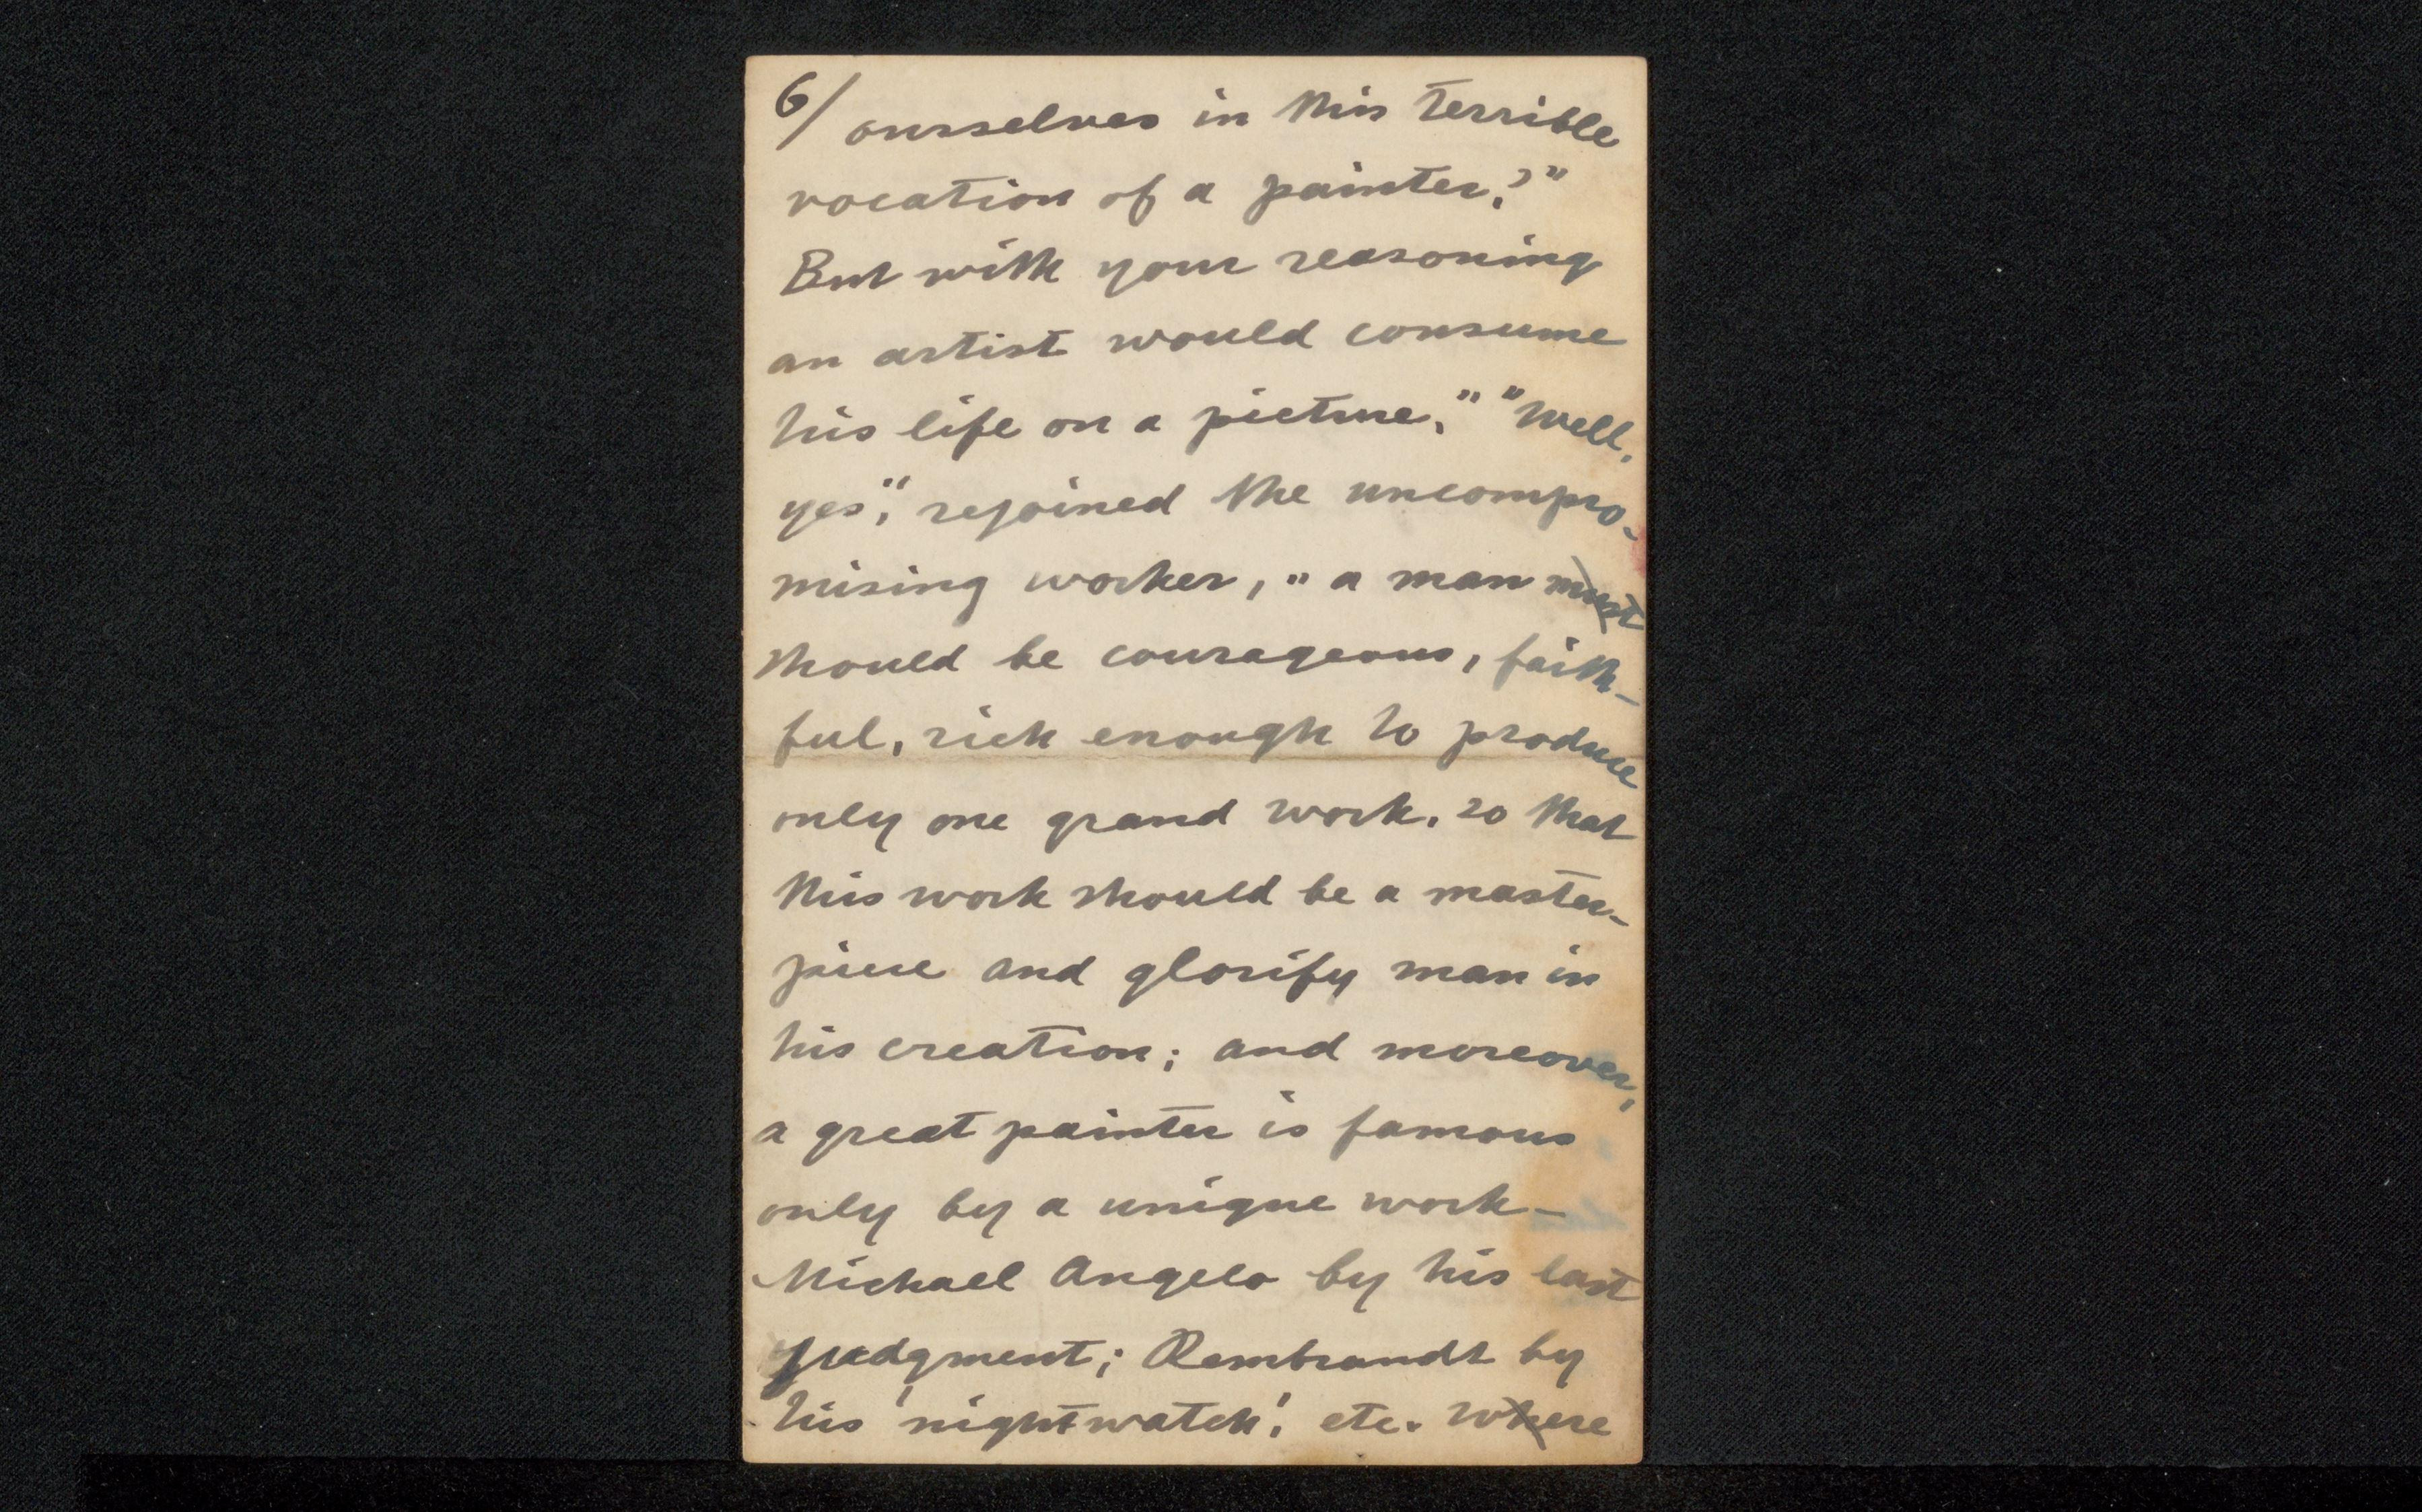 6/ ourselves in this terrible
vocation of a painter?"
But with your reasoning
an artist would consume
his life on a picture." "Well,
yes", rejoined the uncompro-
mising worker, "a man must
should be courageous, faith-
ful, rich enough to produce
only one grand work, so that
this work should be a master-
piece and glorify man in
his creation; and moreover,
a great painter is famous
only by a unique work -
Michael Angelo by his last
judgment; Rembrandt by
his 'nightwatch', etc. Where